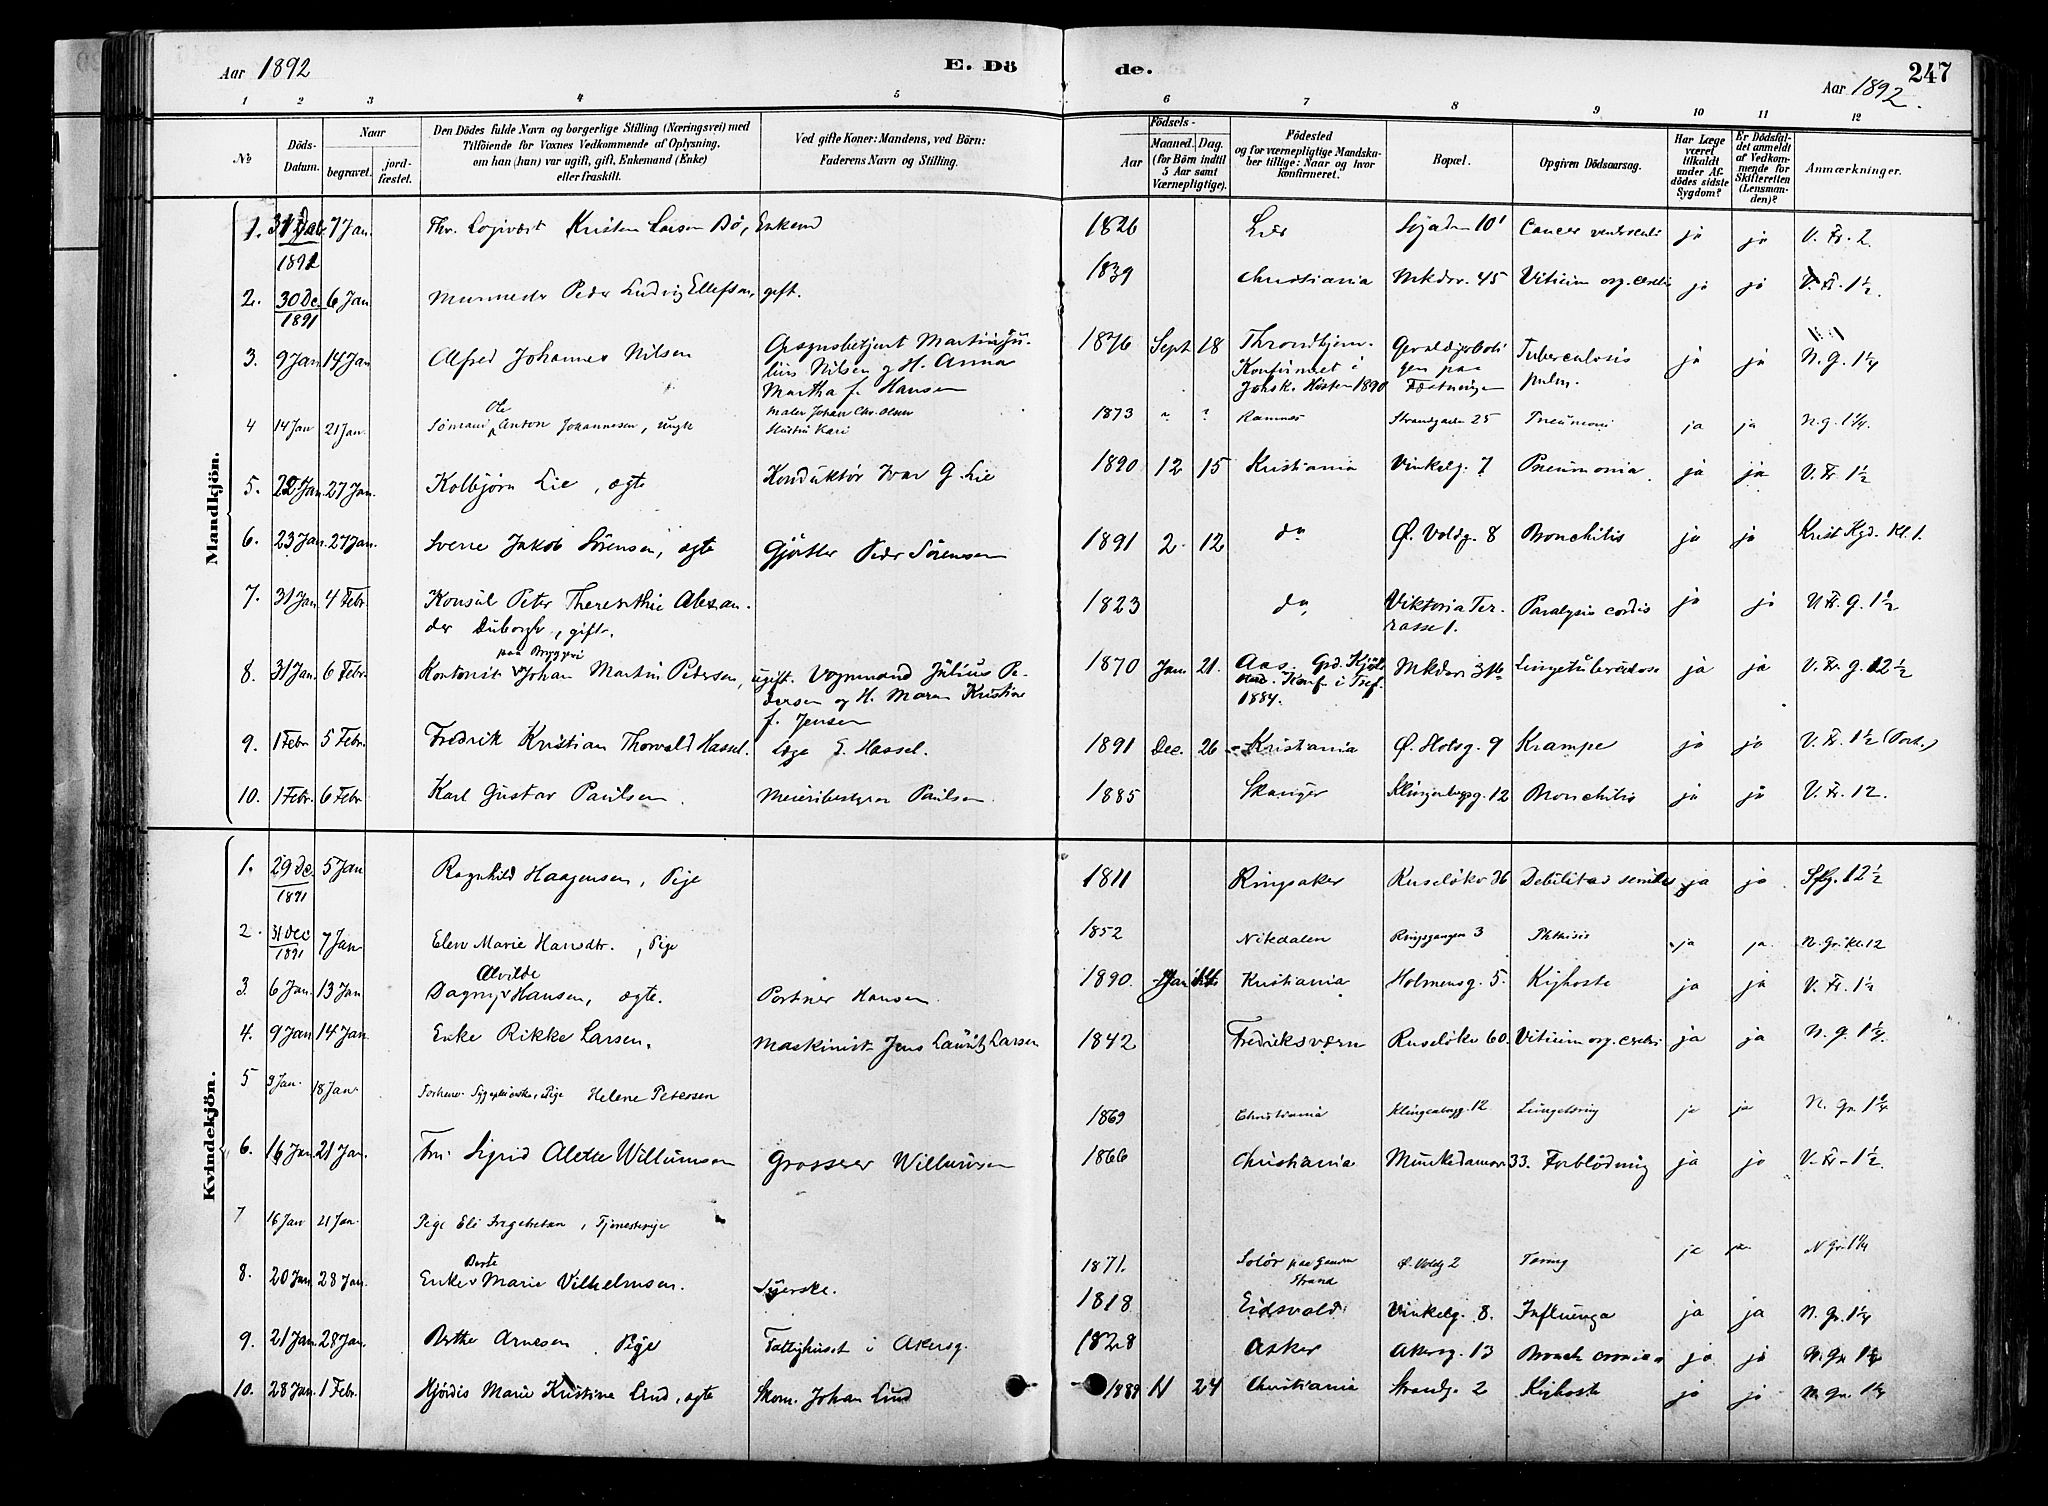 Aar 1892
E. Dö
de.
247
Aar 1892.
1 2 3 4 5 6 7 8 9 10 11 12
№
Döds-
Datum.
Naar
begravet.
jord-
fæstet.
Den Dödes fulde Navn og borgerlige Stilling (Næringsvei) med
Tilföiende for Voxnes Vedkommende af Oplysning,
om han (hun) var ugift, gift, Enkemand (Enke)
eller fraskilt.
Ved gifte Koner: Mandens, ved Börn:
Faderens Navn og Stilling.
Födsels-
Aar
Maaned.
(for Börn indtil
5 Aar samt
Værnepligtige).
Dag.
Födested
og for værnepligtige Mandska-
ber tillige: Naar og hvor
konfirmeret.
Bopæl.
Opgiven Dödsaarsag.
Har Læge
været
tilkaldt
under Af-
dödes sidste
Sygdom?
Er Dödsfal-
det anmeldt
af Vedkom-
mende for
Skifteretten
(Lensman-
den)?
Anmærkninger.
Mandkjön.
1. 31 7 Jan. Kristen Larsen Bö, Enkemd 1826 Lier 10 Cancer ventriculi ja ja V. Fr. 2.
1891
2. 30 De. 6 Jan Peder Ludvig Ellefsen, gift. 1839 Christiania Mkdv. 45 Vitium org. cerebri ja ja V. Fr. 1½.
1891
3. 9 Jan 14 Jan Alfred Johannes Nilsen Opsynsbetjent Martin Ju-
lius Nilsen og H. Anna
Martha f. Hansen 1876 Sept 18 Throndhjem.
Konfirmeret i
Johsk. Hösten 1890 paa
Fæstningen Tuberculosis
pulm. ja ja N. G. 1¼
4 14 Jan 21 Jan. Sömand Ole Anton Johannesen, ungk Maler Johan Chr. Olsen
Hustru Kari 1873 " " Ramnes Strandgaden 25 Pneumoni ja ja N. g. 1¼.
5. 22 Jan. 27 Jan. Kolbjörn Lie, ægte Konduktör Ivar G. Lie 1890 12 15 Kristiania Vinkelg. 7 Pneumonia ja ja V. Fr. 1½
6. 23 Jan. 27 Jan. Sverre Jakob Sörensen, ægte Gjörtler Peder Sörensen 1891 2. 12 do Ö. Voldg. 8 Bronchitis ja ja Krist Kgd. Kl. 1.
7. 31 Jan. 4 Febr. Konsul Peter Alexan-
der Duborgh, gift. 1823 do Viktoria Ter-
rasse 1. Paralysis cordis ja ja 1½
8. 31 Jan. 6 Febr. Kontorist paa Johan Martin Pedersen, ugift. Vognmand Julius Pe-
dersen og H. Maren Kristine
f. Jensen 1870 Jan. 21. Aas. Konf. i Tref.
1884. Mkdv. Lungetuberculose ja ja V. Fr. G. 12½
9. 1 Febr 5 Febr. Fredrik Kristian Thorvald Hassel. Læge E. Hassel. 1891 Dec. 26 Kristiania Ö. 9 Krampe ja ja V. Fr. 1½ (Port.)
10. 1 Febr. 6 Febr. Karl Gustav Paulsen. Meieribestyrer Paulsen. 1885 Klingenbergg. 12 Bronchitis ja ja V. Fr. 12.
Kvindekjön.
1. 29 De. 5 Jan Ragnhild Haagensen, Pige 1811 Ringsaker Ruselökv 36 Debilitas senilis ja ja 12½
1891
2. 31 Dec 7 Jan. Elen Marie Hansdtr., Pige 1852 Nikdalen Ringsgangen 3 Phthisis ja ja N. Gr. kl. 12
1891
3. 6 Jan. 13 Jan Dagny Alvilde Hansen, ægte. Portner Hansen. 1890. Jan Kristiania Holmensg. 5. Kighoste ja ja V. Fr. 1½
4. 9 Jan 14 Jan. Enke Rikke Larsen. Maskinist Jens Lauritz Larsen 1842 Fredriksværn Ruselökv 60. Vitium org. cerebri ja ja N. g. 1¼.
5 9 Jan. 18 Jan. Forhenv. Sygepleierske, Pige Helene Petersen 1869 Christiania Klingenbergg. 12 ja ja N. Gr. 1¼
6. 16 Jan. 21 Jan. Fru Sigrid Alette Willumsen Grosserer Willumsen 1866 Christiania Munkedamsv 33. Forblödning ja ja V. Fr. 1½.
7 16 Jan 21 Jan. Pige Eli, Tjenestepige 1871. Solör Strand Ö. Voldg 2 Tæring ja ja N Gr. 1¼
8. 20 Jan. 28 Jan. Enke Berte Marie Vilhelmsen. Syerske. 1818 Eidsvold Vinkelg. 8. Influenza ja ja N. Gr. 1¼
9. 21 Jan. 28 Jan. Berthe Arnesen. Pige Fattighuset i Akersg. 1828 Asker Akersg. 13 Bronch cronica ja ja N. Gr. 1¼
10. 28 Jan. 1 Febr. Hjördis Marie Kristine Lund, ægte Skom. Johan Lund 1889 N 24 Christiania Strandg. 2 Kighoste ja ja N. Gr. 1¼